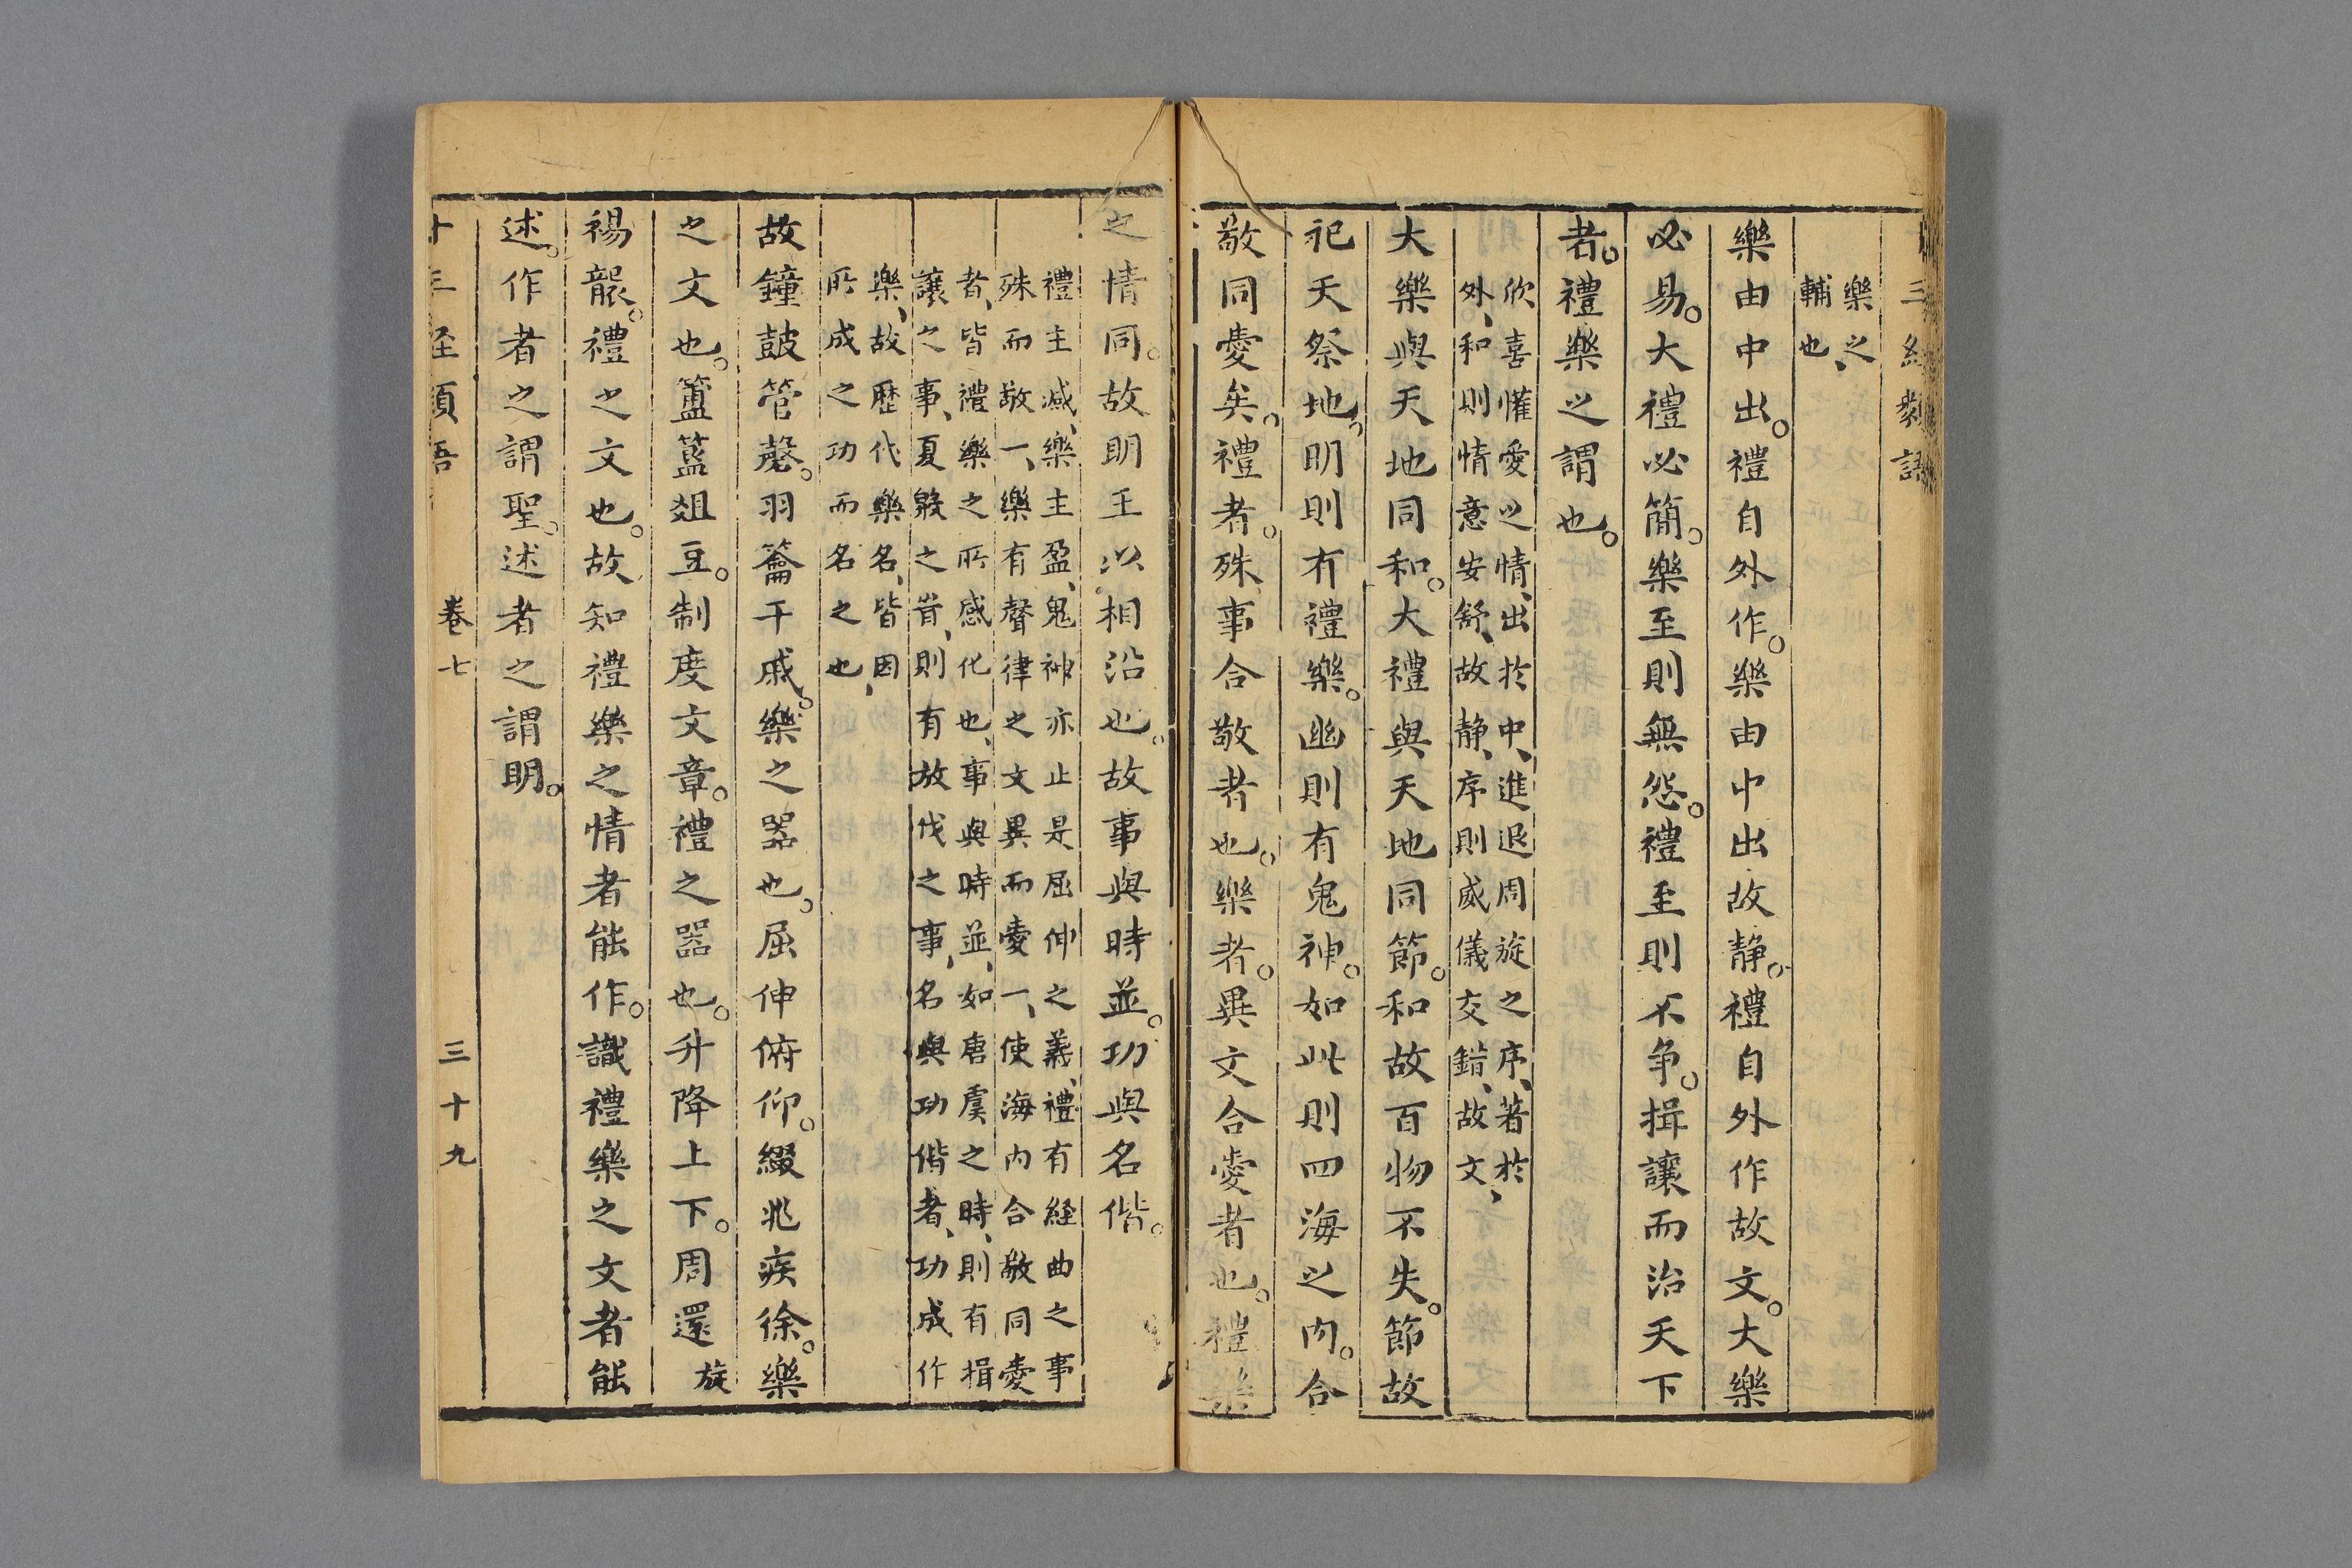 十三經類語
樂之
輔也、
樂由中出。禮自外作。樂由中出故静。禮自外作故文。大樂
必易。大禮必簡。樂至則無怨。禮至則不争。揖讓而治天下
者。禮樂之謂也。
欣喜懽愛之情、出於中、進退周旋之序、著於、
外、和則情意安舒、故静、序則威儀交錯、故文、
大樂與天地同和。大禮與天地同節。和故百物不失。節故
祀天祭地。明則有禮樂。幽則有鬼神。如此則四海之内。合
敬同愛矣。禮者。殊事合敬者也。樂者。異文合愛者也。禮樂
之情同。故明王以相沿也。故事與時並。功與名偕。
禮主減、樂主盈、鬼神亦止是屈伸之義、禮有経曲之事
殊而敬一、樂有聲律之文異而愛一、使海内合敬同愛
者、皆禮樂之所感化也、事與時並、如唐虞之時、則有揖
讓之事、夏殷之時、則有放伐之事、名與功偕者、功成作
樂、故歴代樂名、皆因
所成之功而名之也、
故鐘鼓管磬。羽籥干戚。樂之器也。屈伸俯仰。綴兆疾徐。樂
之文也。簠簋爼豆。制度文章。禮之器也。升降上下。周還旋
裼襲。禮之文也。故知禮樂之情者能作。識禮樂之文者能
述。作者之謂聖。述者之謂明。
十三經類語 卷七 三十九